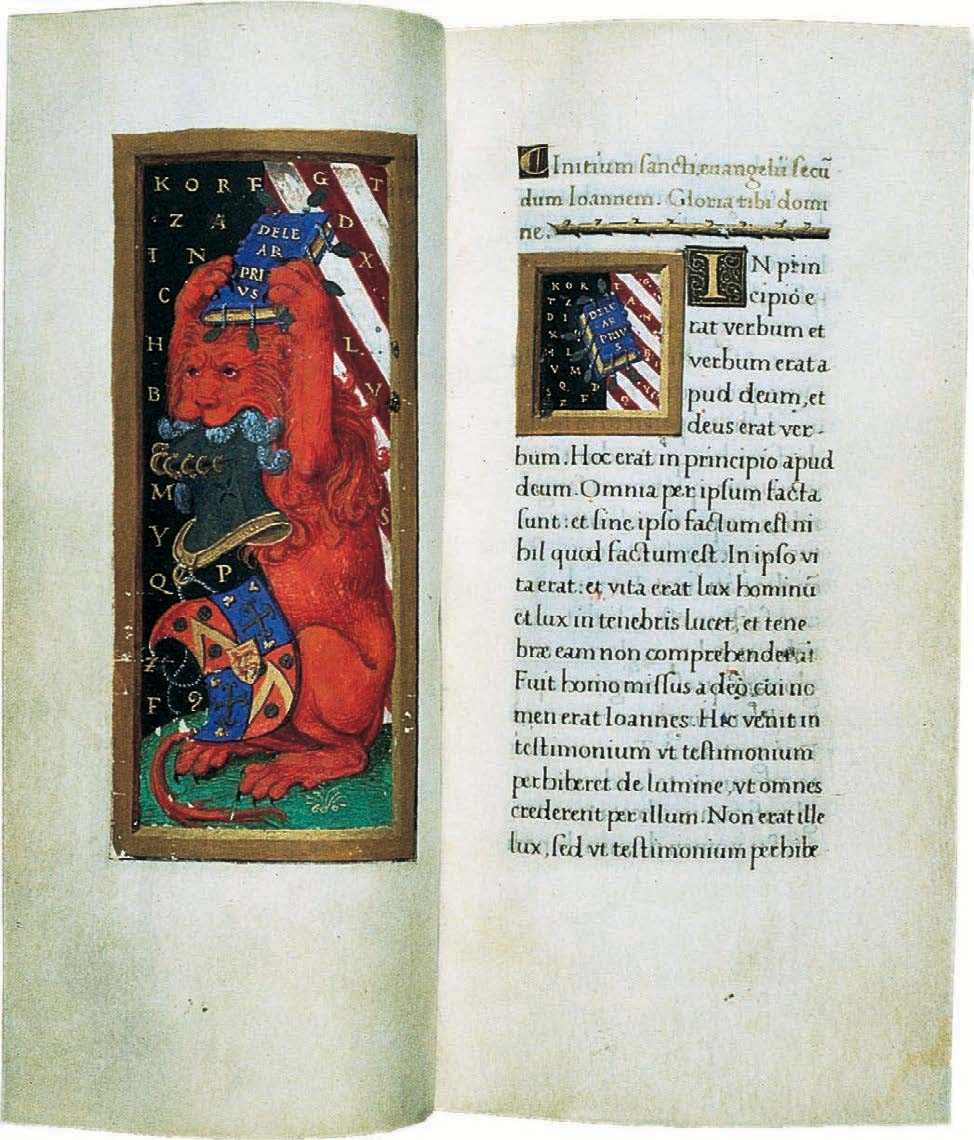 K O R F G T
Z A D
I N X
C
H L
B V
M
Y S
Q P
Z
F 9
DELE
AR
PRI
VS
Initium sancti euangelii secū
dum Ioannem. Gloria tibi domi
ne.
IN prin
cipio e
rat verbum et
verbum erat a
pud deum, et
deus erat ver-
bum. Hoc erat in principio apud
deum. Omnia per ipsum facta
sunt: et sine ipso factum est ni
hil quod factum est. In ipso vi
ta erat: et vita erat lux hominū
et lux in tenebris lucet, et tene
bræ eam non comprehenderūt
Fuit homo missus a deo, cui no
men erat Ioannes. Hic venit in
testimonium vt testimonium
perhiberet de lumine, vt omnes
crederent per illum. Non erat ille
lux, sed vt testimonium perhibe
KOR
DELE
AR
PRIV
S